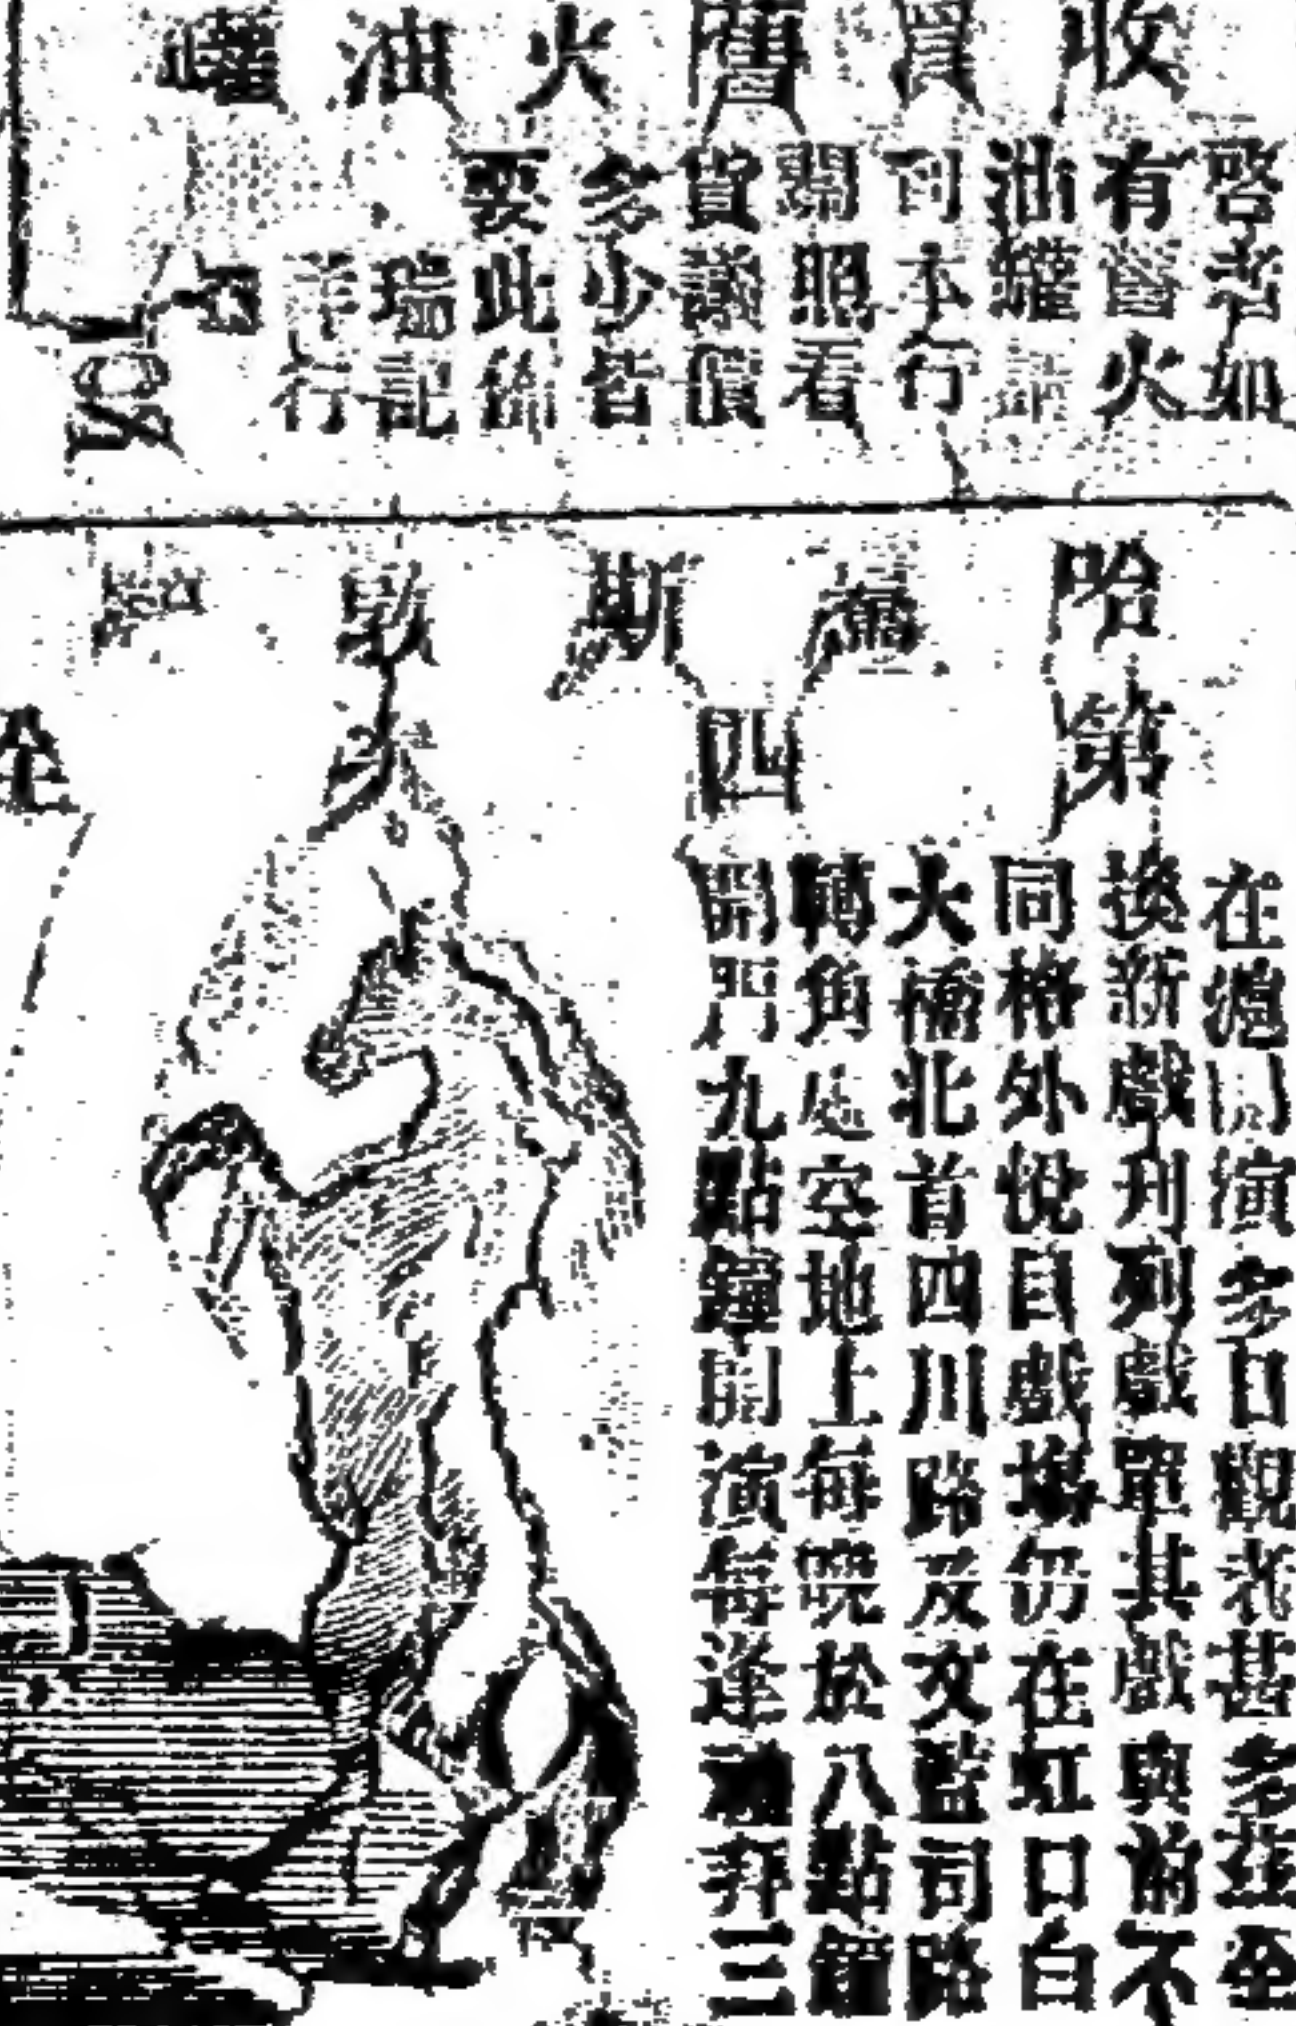 收買舊火油罐
啓者如
有舊火
油罐請
司本行
開照看
貨議價
多少皆
要此飾
瑞記
洋行
哈 斯敦
第四次
全
在滬開演多日觀者甚多茲全
換新戲刋列戲單其戲與前不
同格外悅目戲塲仍在虹口白
大橋北首四川路及文監司路
轉角處空地上每晚於八點鐘
開門九點鐘開演每逢禮拜三